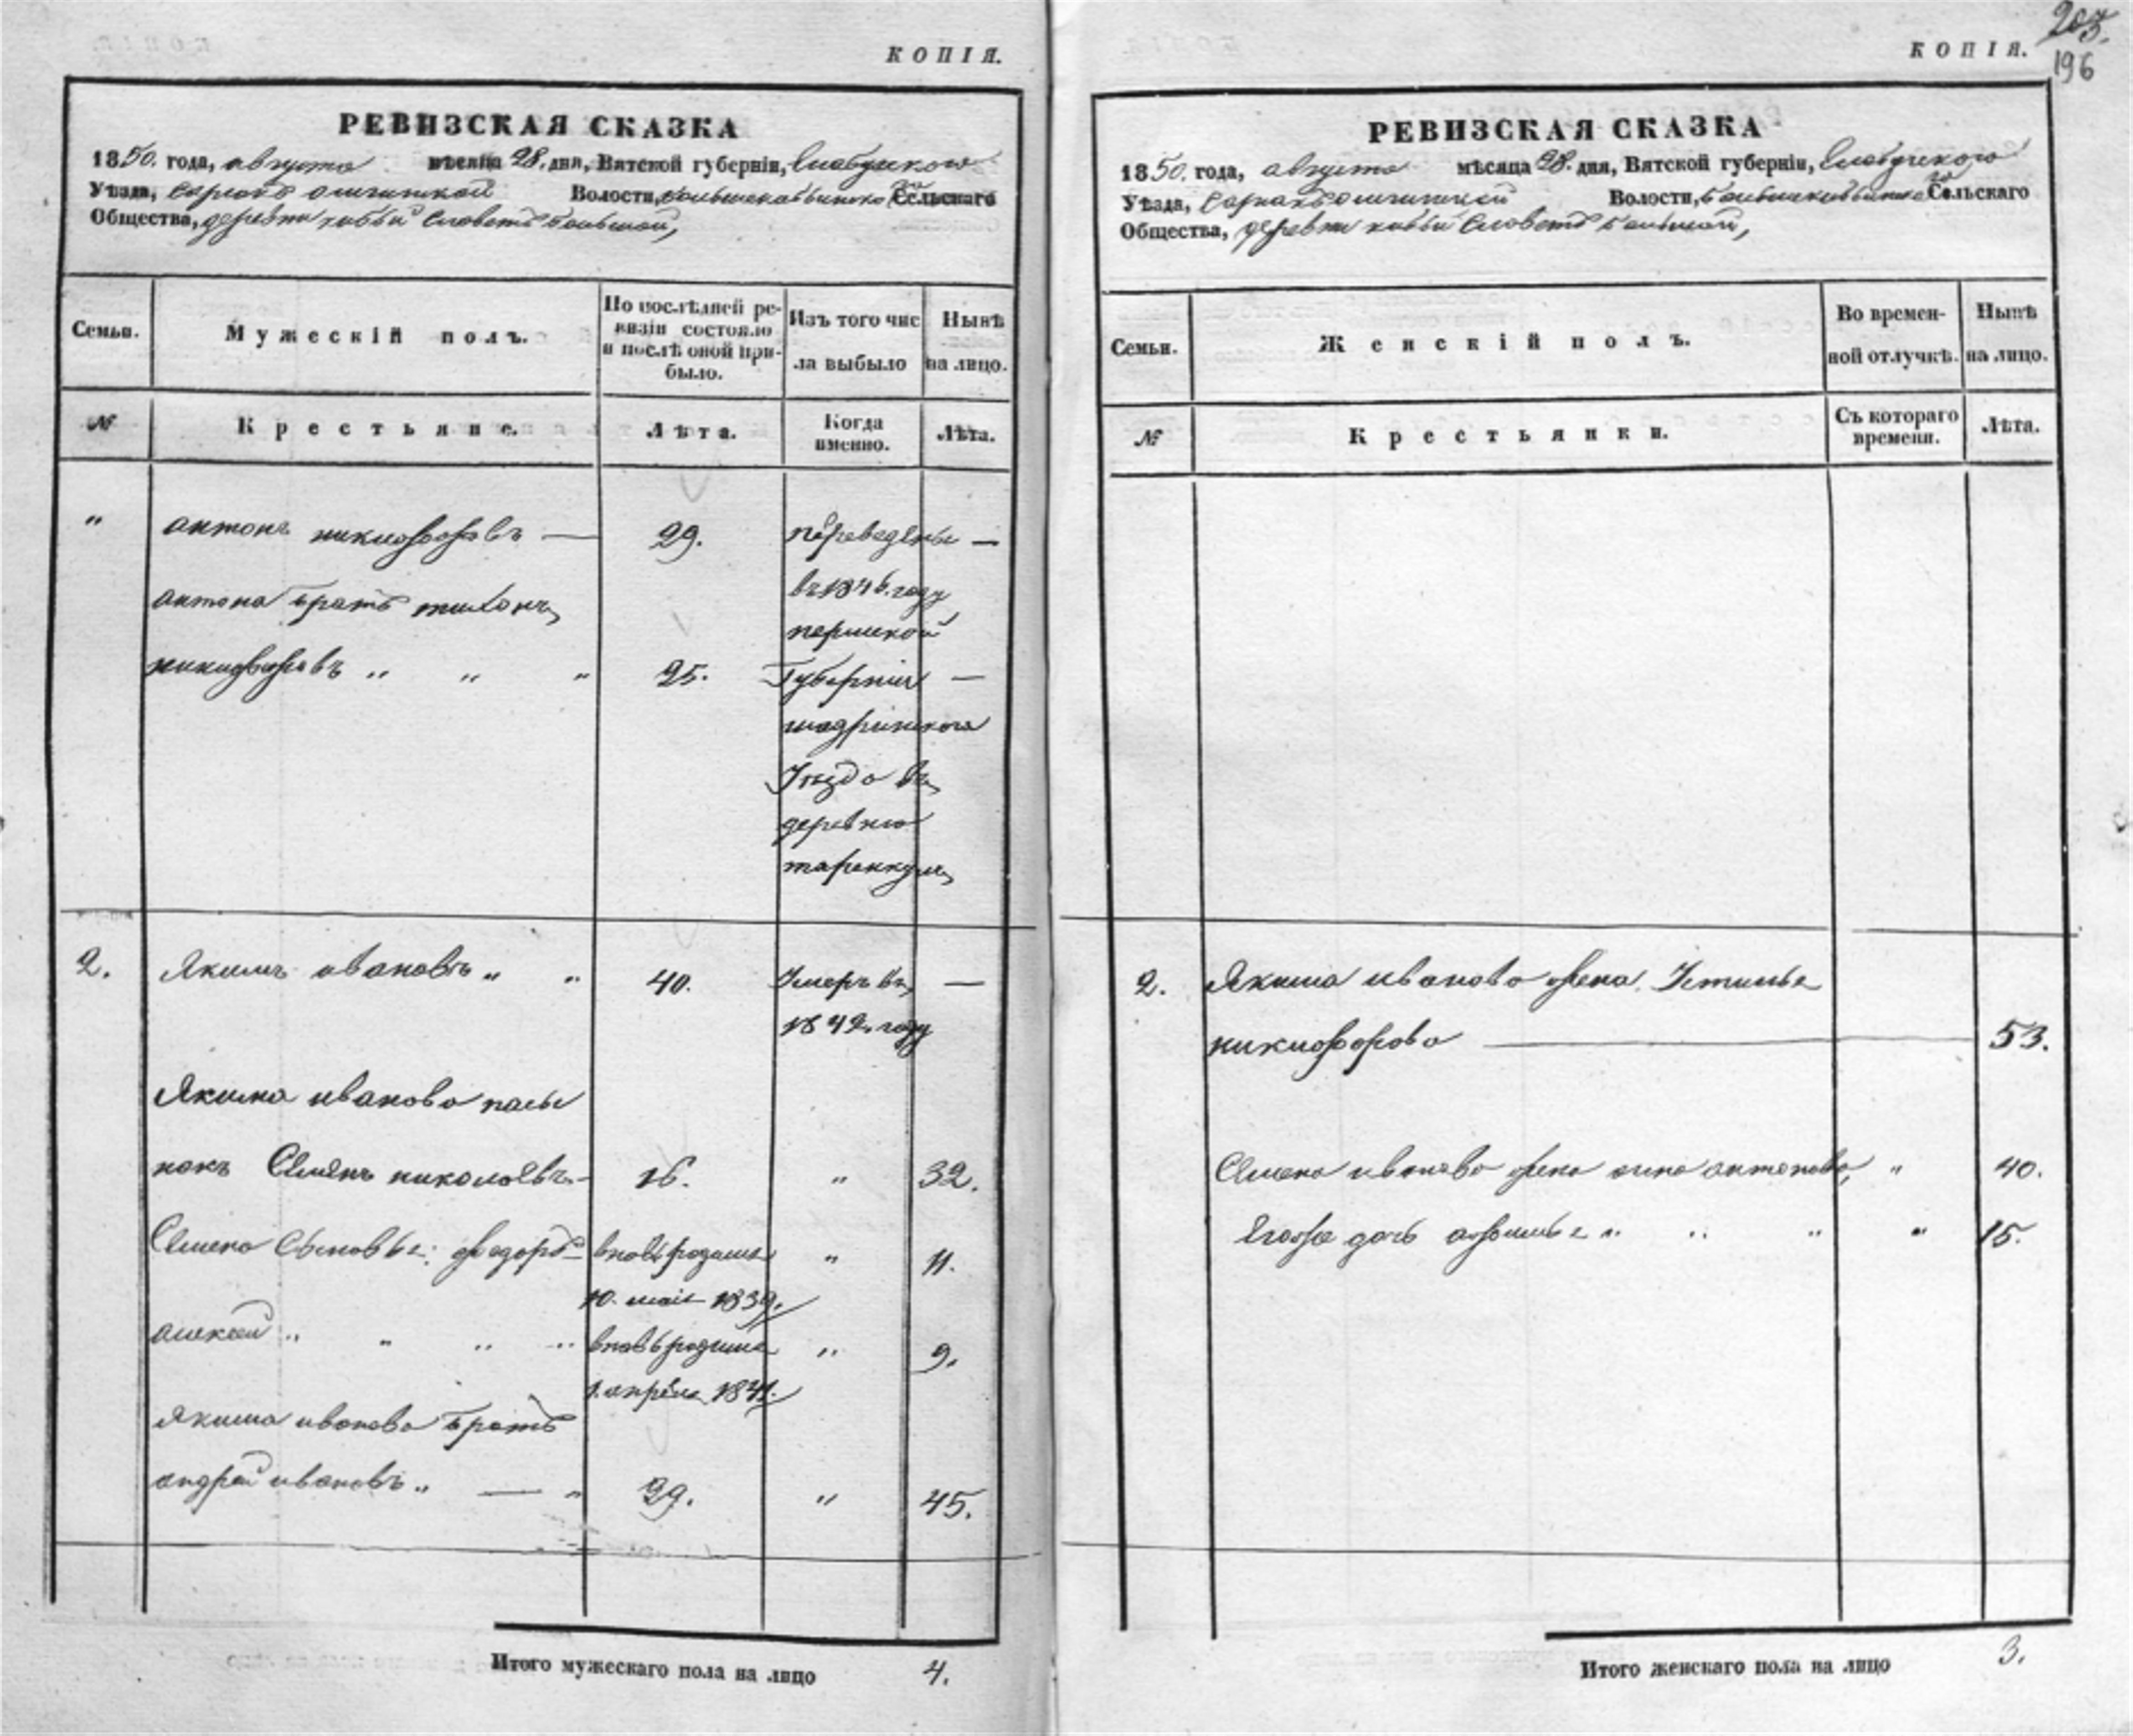 КОПІЯ.
РЕВИЗСКАЯ СКАЗКА
1850. года, августа мѣсяца 28. дня, Вятской губерніи, Елабужского
Уѣзда, Волости, Сельскаго
Общества, деревни большой,
Семьи.
Мужескій полъ.
По послѣдней ре-
визіи состояло
и послѣ оной при-
было.
Изъ того чис
ла выбыло
Нынѣ
на лицо.
№
Крестьяне.
Лѣта.
Когда
именно.
Лѣта.
" антонъ никифоровъ — 29. переведены —
въ 1846. году
антона братъ тихонъ,
пермской
никифоровъ " " " 25. Губерніи —
шадринскога
Уѣзда въ
деревню
2. Якимъ ивановъ " " 40. Умеръ въ —
1842. году
Якима иванова пасы
нокъ Семенъ николаевъ 16. " 32.
Семена Сыновья: федоръ вновь " 11.
10. мая 1839.
алексей " " " " вновь " 9.
1. апреля 1841.
Якима иванова братъ
андрей ивановъ " — " 29. " 45.
Итого мужескаго пола на лицо 4.
203.
196
КОПІЯ.
РЕВИЗСКАЯ СКАЗКА
1850. года, августа мѣсяца 28. дня, Вятской губерніи, Елабужского
Уѣзда, Волости, Сельскаго
Общества, деревни большой,
Семьи.
Женскій полъ.
Во времен-
ной отлучкѣ.
Нынѣ
на лицо.
№
Крестьянки.
Съ котораго
времени.
Лѣта.
2. Якима иванова жена Устинья
никифорова — 53.
Семена иванова жена анна антонова, " 40.
дочь " " " " 15.
Итого женскаго пола на лицо 3.